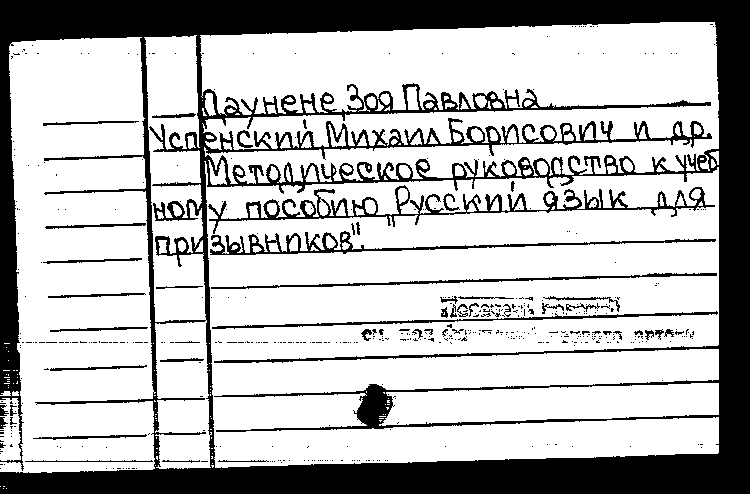 Паунене, Зоя Павловна.
Успенский, Михаил Борисович и др.
Методическое руководство к учеб
ному пособию „Русский язык для
призывников".
см. под фамилией первого автора